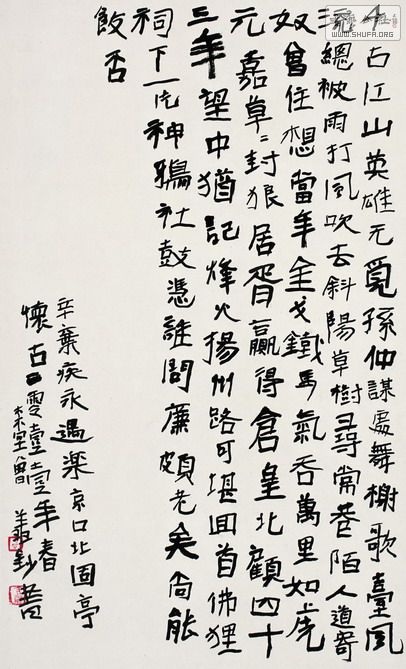 千古江山英雄无覓孫仲謀處舞榭歌臺風
流總被雨打風吹去斜陽草樹尋常巷陌人道寄
奴曾住想當年金戈鐵馬氣吞萬里如虎
元嘉草〻封狼居胥贏得倉皇北顧四十
三年望中猶記烽火揚州路可堪回首佛狸
祠下一片神鴉社鼓憑誰問廉頗老矣尚能
飯否
辛棄疾永遇樂京口北固亭
懷古二零壹壹年春
鈔書
WWW.SHUFA.ORG